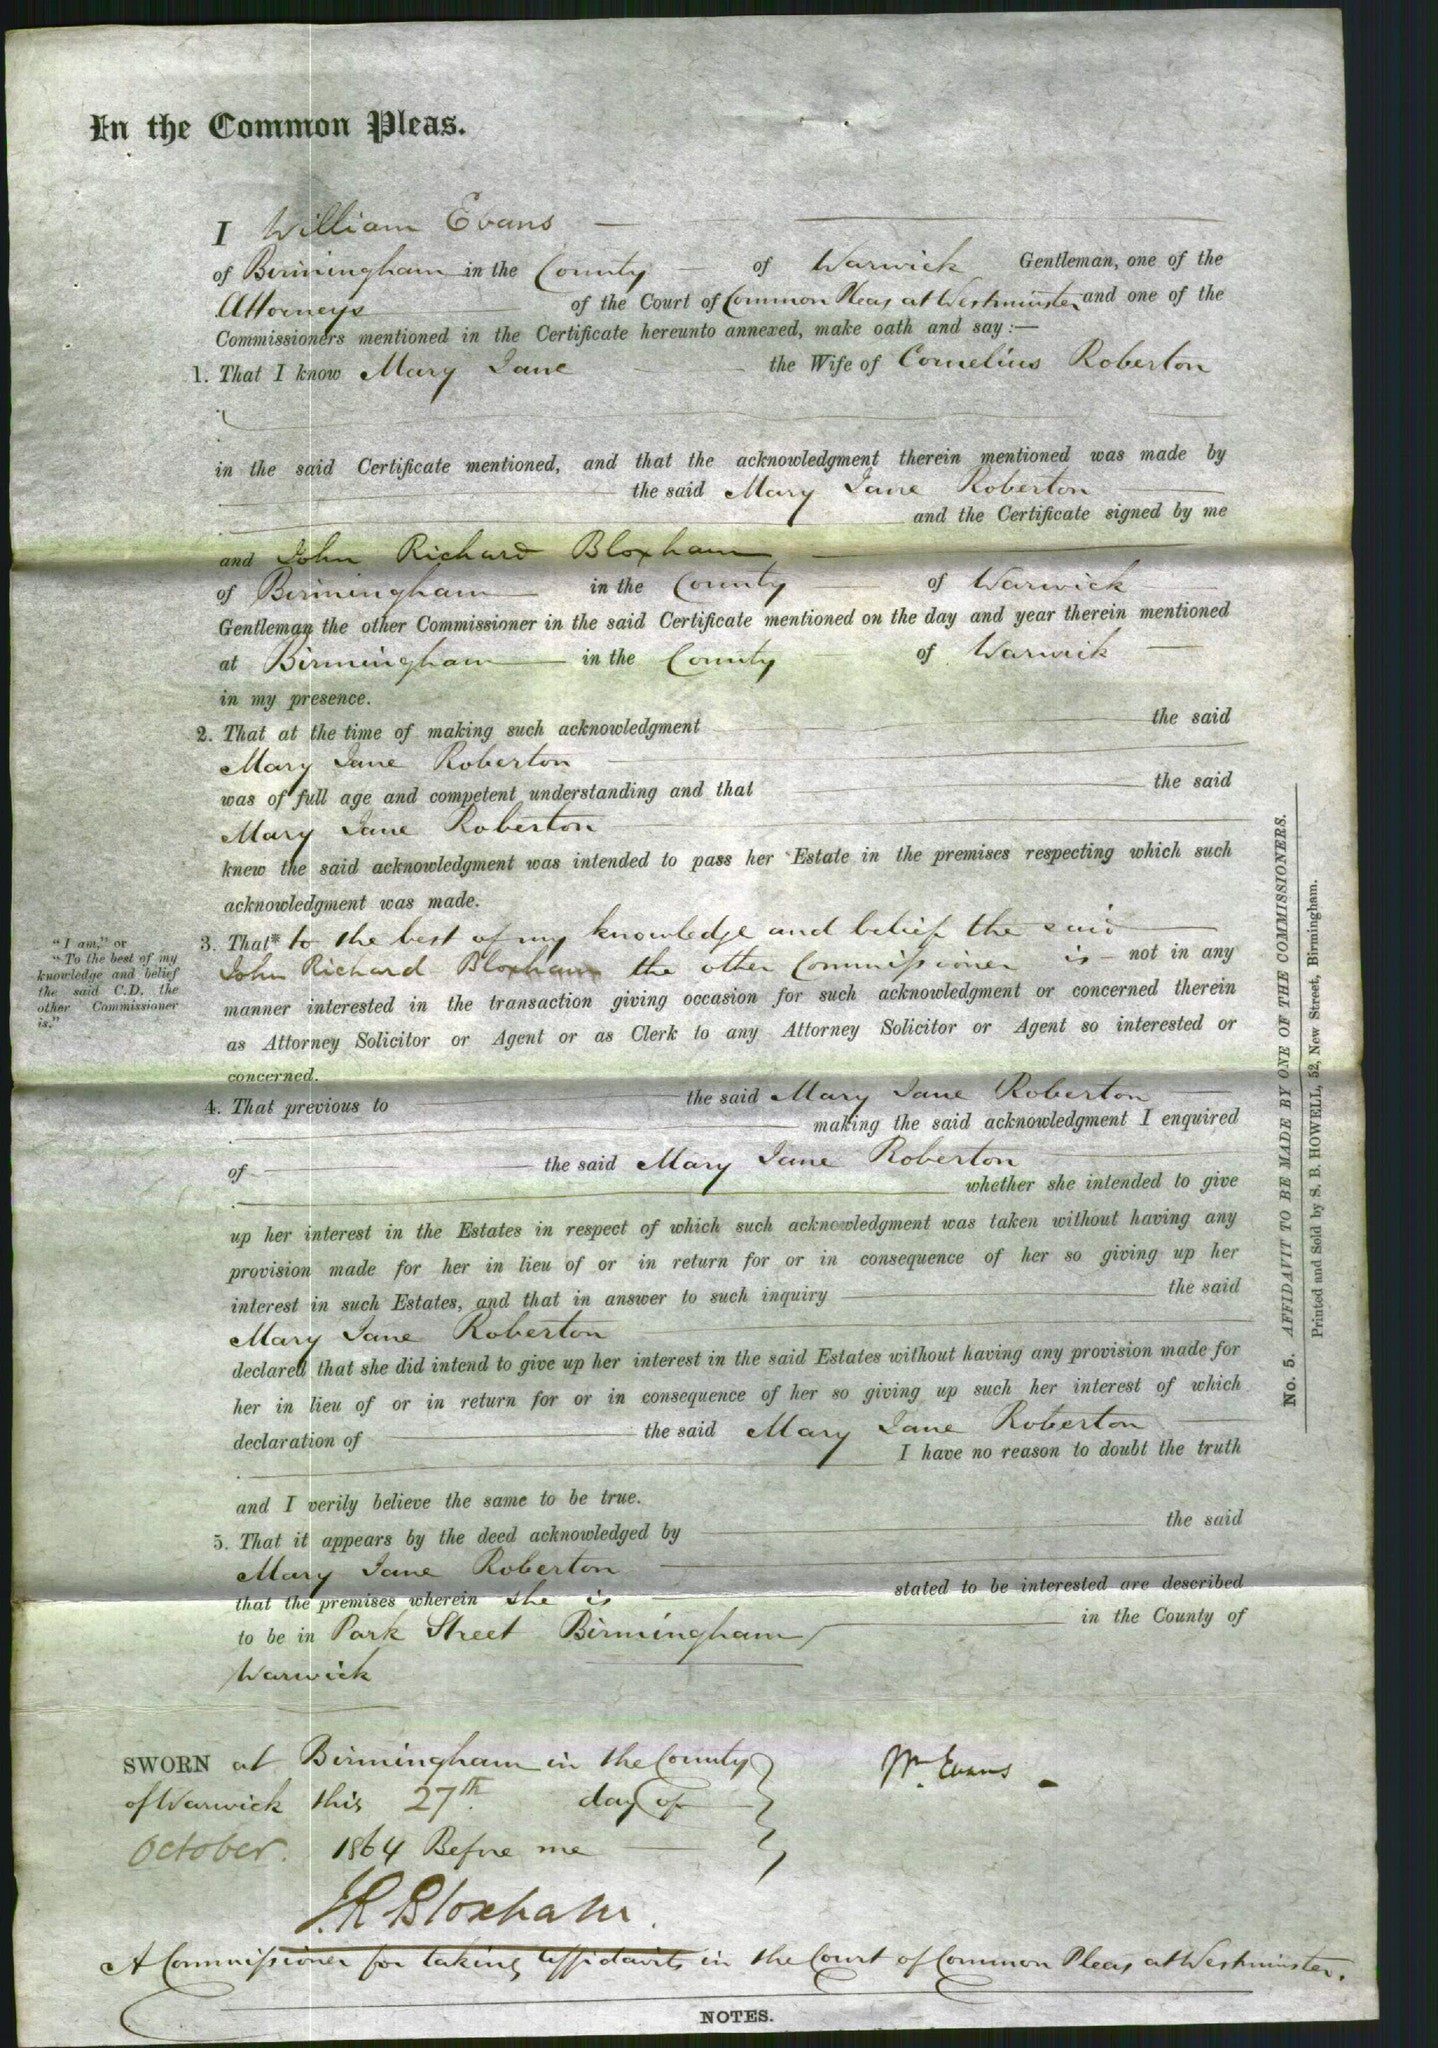 In the Common Pleas.
I William Evans
of Birmingham in the County of Warwick Gentleman, one of the
Attorneys of the Court of Common Pleas at Westminster and one of the
Commissioners mentioned in the Certificate hereunto annexed, make oath and say:—
1. That I know Mary Jane the Wife of Cornelius Roberton
in the said Certificate mentioned, and that the acknowledgment therein mentioned was made by
the said Mary Jane Roberton
and the Certificate signed by me
and John Richard Bloxham
of Birmingham in the County of Warwick
Gentleman the other Commissioner in the said Certificate mentioned on the day and year therein mentioned
at Birmingham in the County of Warwick
in my presence.
2. That at the time of making such acknowledgment the said
Mary Jane Roberton
was of full age and competent understanding and that the said
Mary Jane Roberton
knew the said acknowledgment was intended to pass her Estate in the premises respecting which such
acknowledgment was made.
"I am," or
"To the best of my
knowledge and belief
the said C.D. the
other Commissioner
is."
3. That* to the best of my knowledge and belief the said
John Richard Bloxham the other Commissioner is not in any
manner interested in the transaction giving occasion for such acknowledgment or concerned therein
as Attorney Solicitor or Agent or as Clerk to any Attorney Solicitor or Agent so interested or
concerned.
4. That previous to the said Mary Jane Roberton
making the said acknowledgment I enquired
of the said Mary Jane Roberton
whether she intended to give
up her interest in the Estates in respect of which such acknowledgment was taken without having any
provision made for her in lieu of or in return for or in consequence of her so giving up her
interest in such Estates, and that in answer to such inquiry the said
Mary Jane Roberton
declared that she did intend to give up her interest in the said Estates without having any provision made for
her in lieu of or in return for or in consequence of her so giving up such her interest of which
declaration of the said Mary Jane Roberton
I have no reason to doubt the truth
and I verily believe the same to be true.
5. That it appears by the deed acknowledged by the said
Mary Jane Roberton
that the premises wherein she is stated to be interested are described
to be in Park Street Birmingham in the County of
Warwick
SWORN at Birmingham in the County
of Warwick this 27th day of
October. 1864 Before me
Wm Evans
J.R. Bloxham.
A Commissioner for taking affidavits in the Court of Common Pleas at Westminster.
NOTES.
No. 5. AFFIDAVIT TO BE MADE BY ONE OF THE COMMISSIONERS.
Printed and Sold by S. B. HOWELL, 52, New Street, Birmingham.